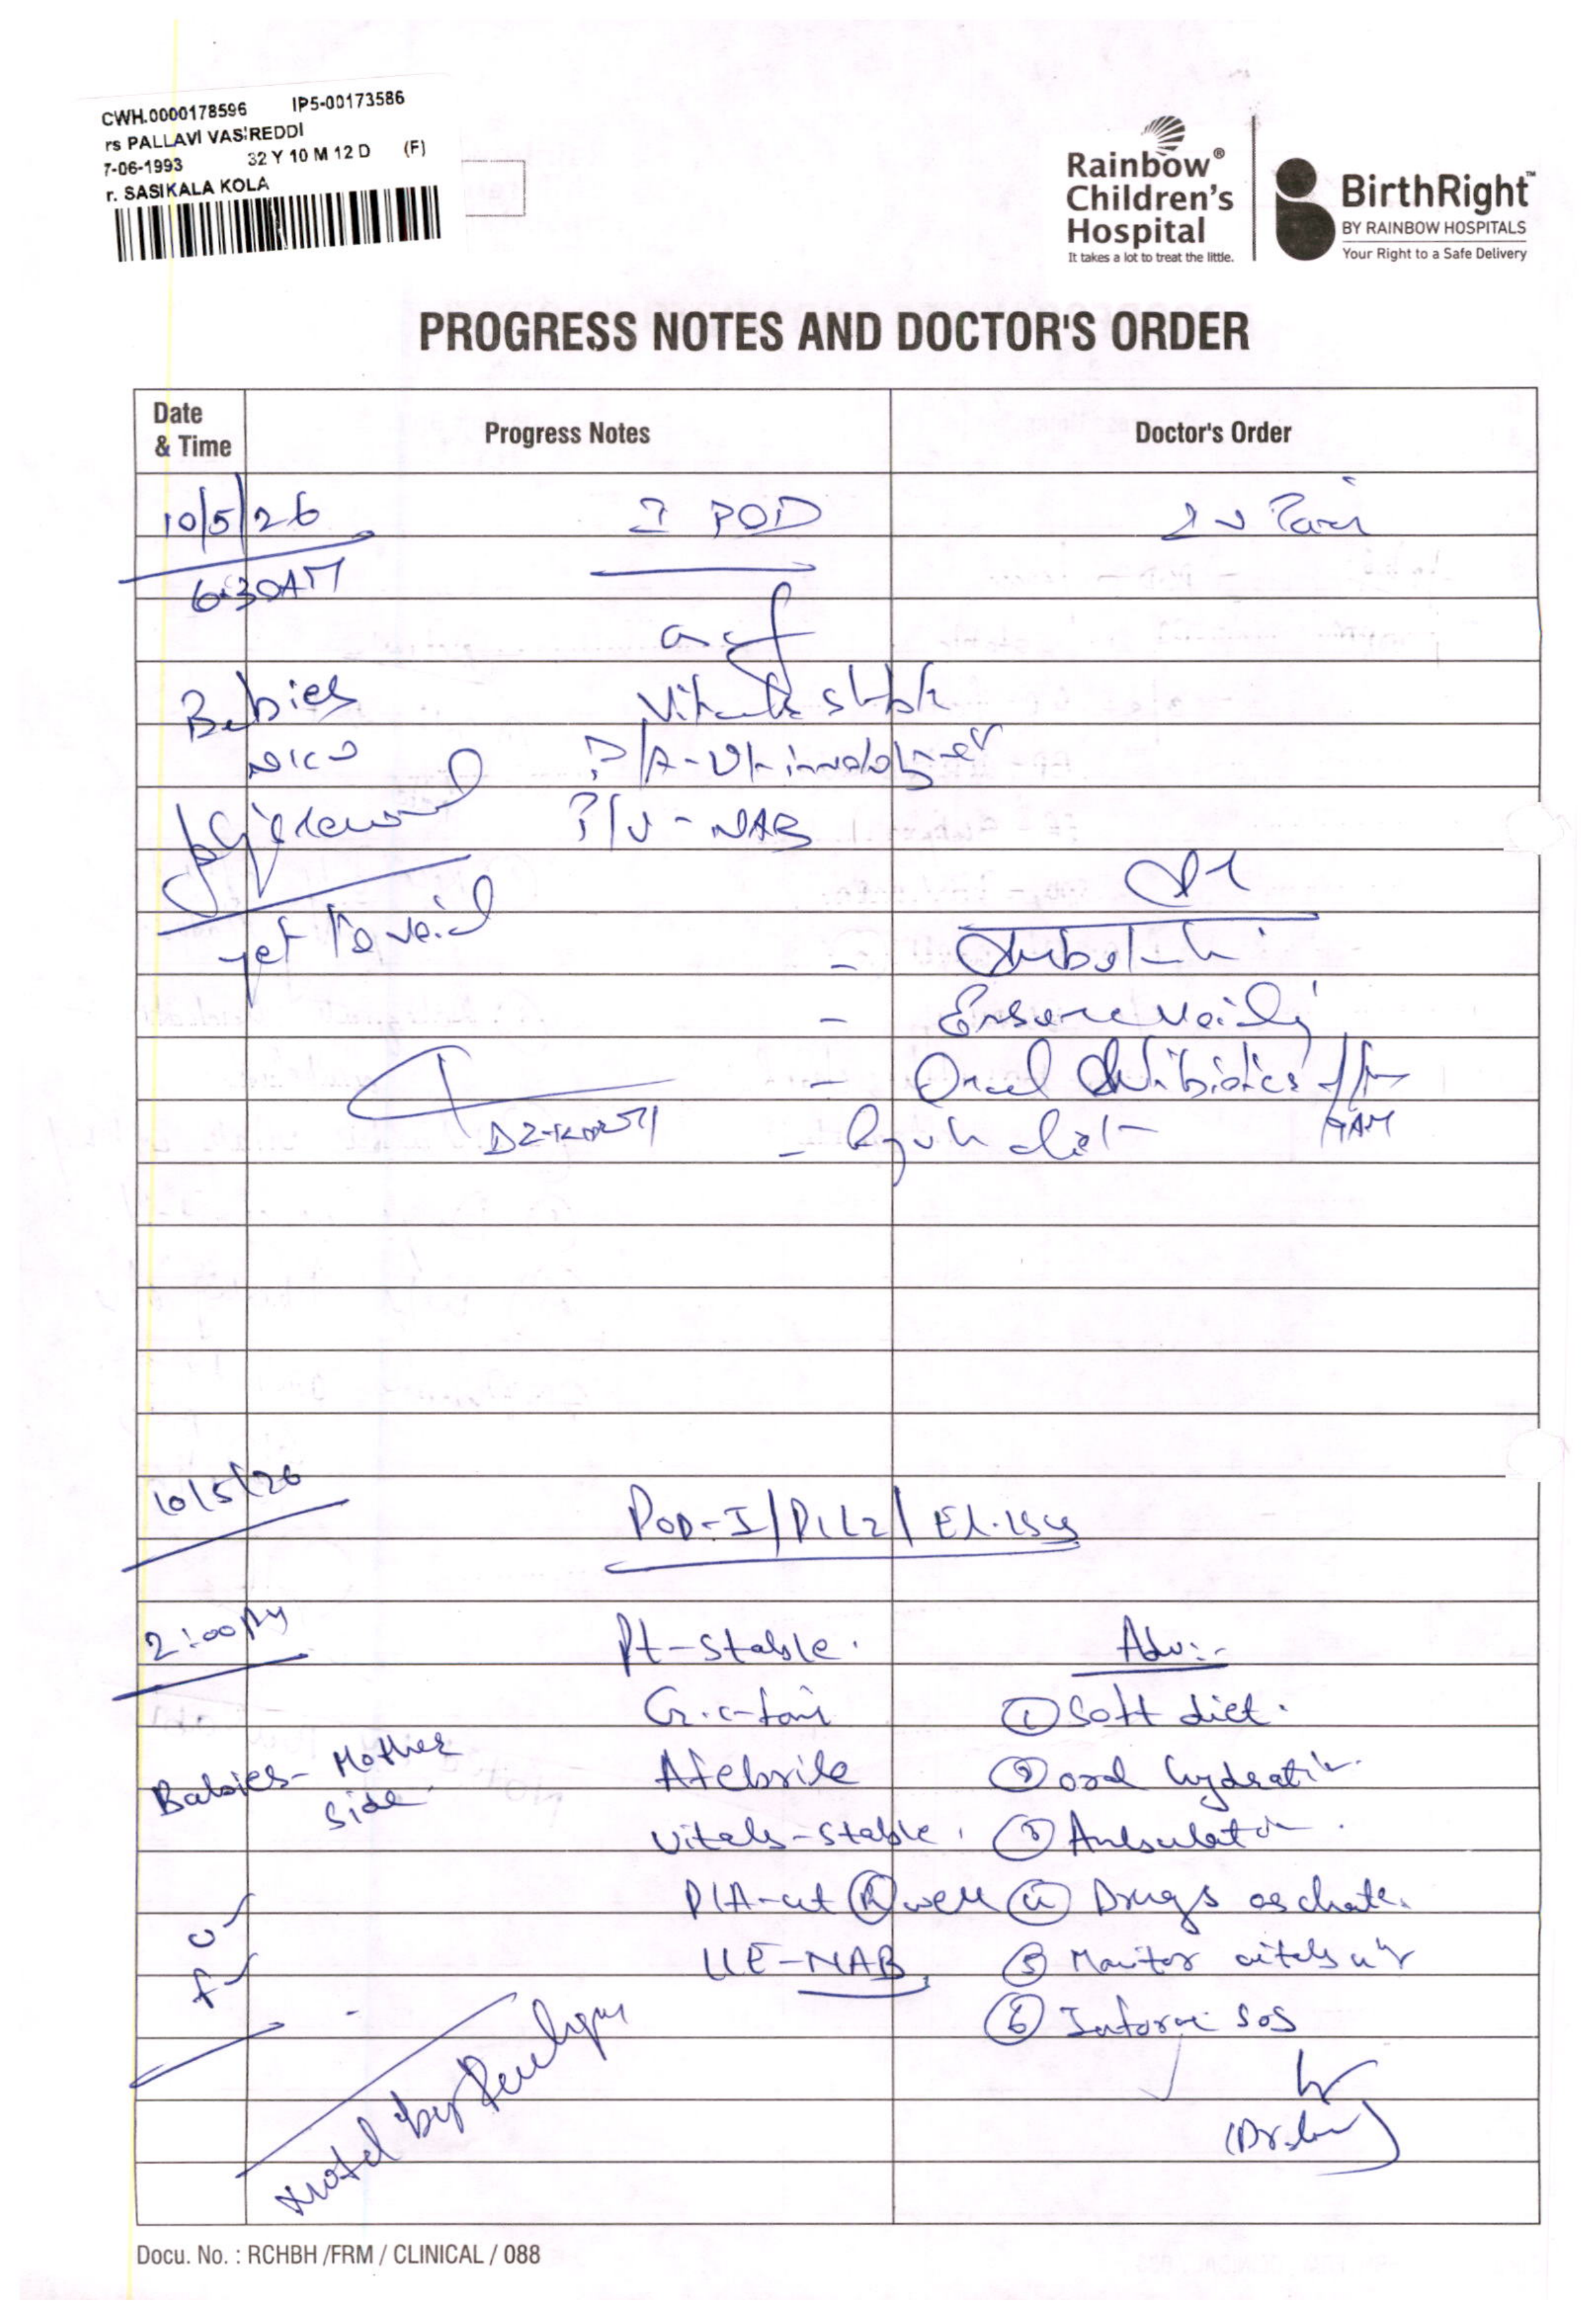 CWH.0000178596 IP5-00173586
rs PALLAVI VASIREDDI
7-06-1993 32 Y 10 M 12 D (F)
r. SASIKALA KOLA
Rainbow®
Children's
Hospital
It takes a lot to treat the little.
BirthRight™
BY RAINBOW HOSPITALS
Your Right to a Safe Delivery
PROGRESS NOTES AND DOCTOR'S ORDER
Date & Time Progress Notes Doctor's Order
10/5/26 I POD
6:30AM
Babies
Vitals stable
P/A-
P/V - NAB
yet to void
-
- Ensure voiding
- Oral Antibiotics
- diet
10/5/26 POD-I/P1L2/El.LSCS
2:00PM Pt-stable. Adv:-
G.c-fair ① Soft diet.
Babies- Mother side Afebrile ② oral hydration
Vitals-stable. ③ Ambulation.
P/A-ut Ⓡ well ④ Drugs as
u✓ L/E-NAB ⑤ Monitor vitals
f✓ ⑥ Inform SOS
Noted by
Docu. No. : RCHBH /FRM / CLINICAL / 088